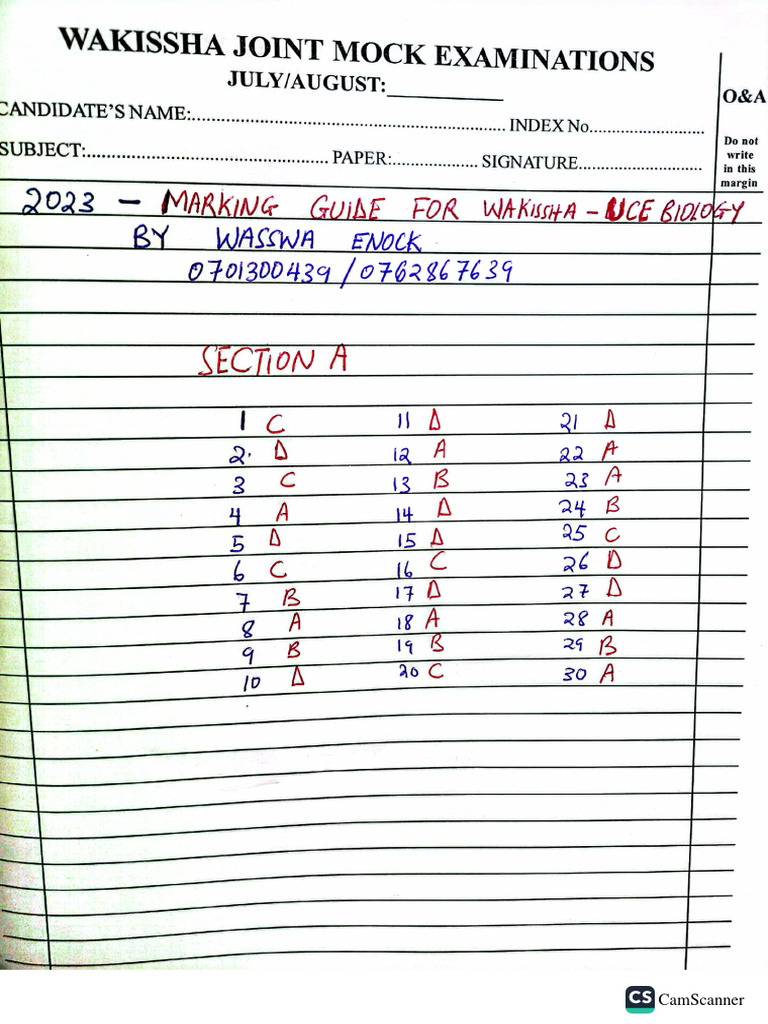 WAKISSHA JOINT MOCK EXAMINATIONS
JULY/AUGUST:____________
O&A
CANDIDATE'S NAME:................................................................ INDEX No.........................
SUBJECT:............................................. PAPER:.................. SIGNATURE...........................
Do not
write
in this
margin
2023 - MARKING GUIDE FOR WAKISSHA - UCE BIOLOGY
BY WASSWA ENOCK
0701300439 / 0762867639
SECTION A
1 C 11 D 21 D
2. D 12 A 22 A
3 C 13 B 23 A
4 A 14 D 24 B
5 D 15 D 25 C
6 C 16 C 26 D
7 B 17 D 27 D
8 A 18 A 28 A
9 B 19 B 29 B
10 D 20 C 30 A
CS CamScanner